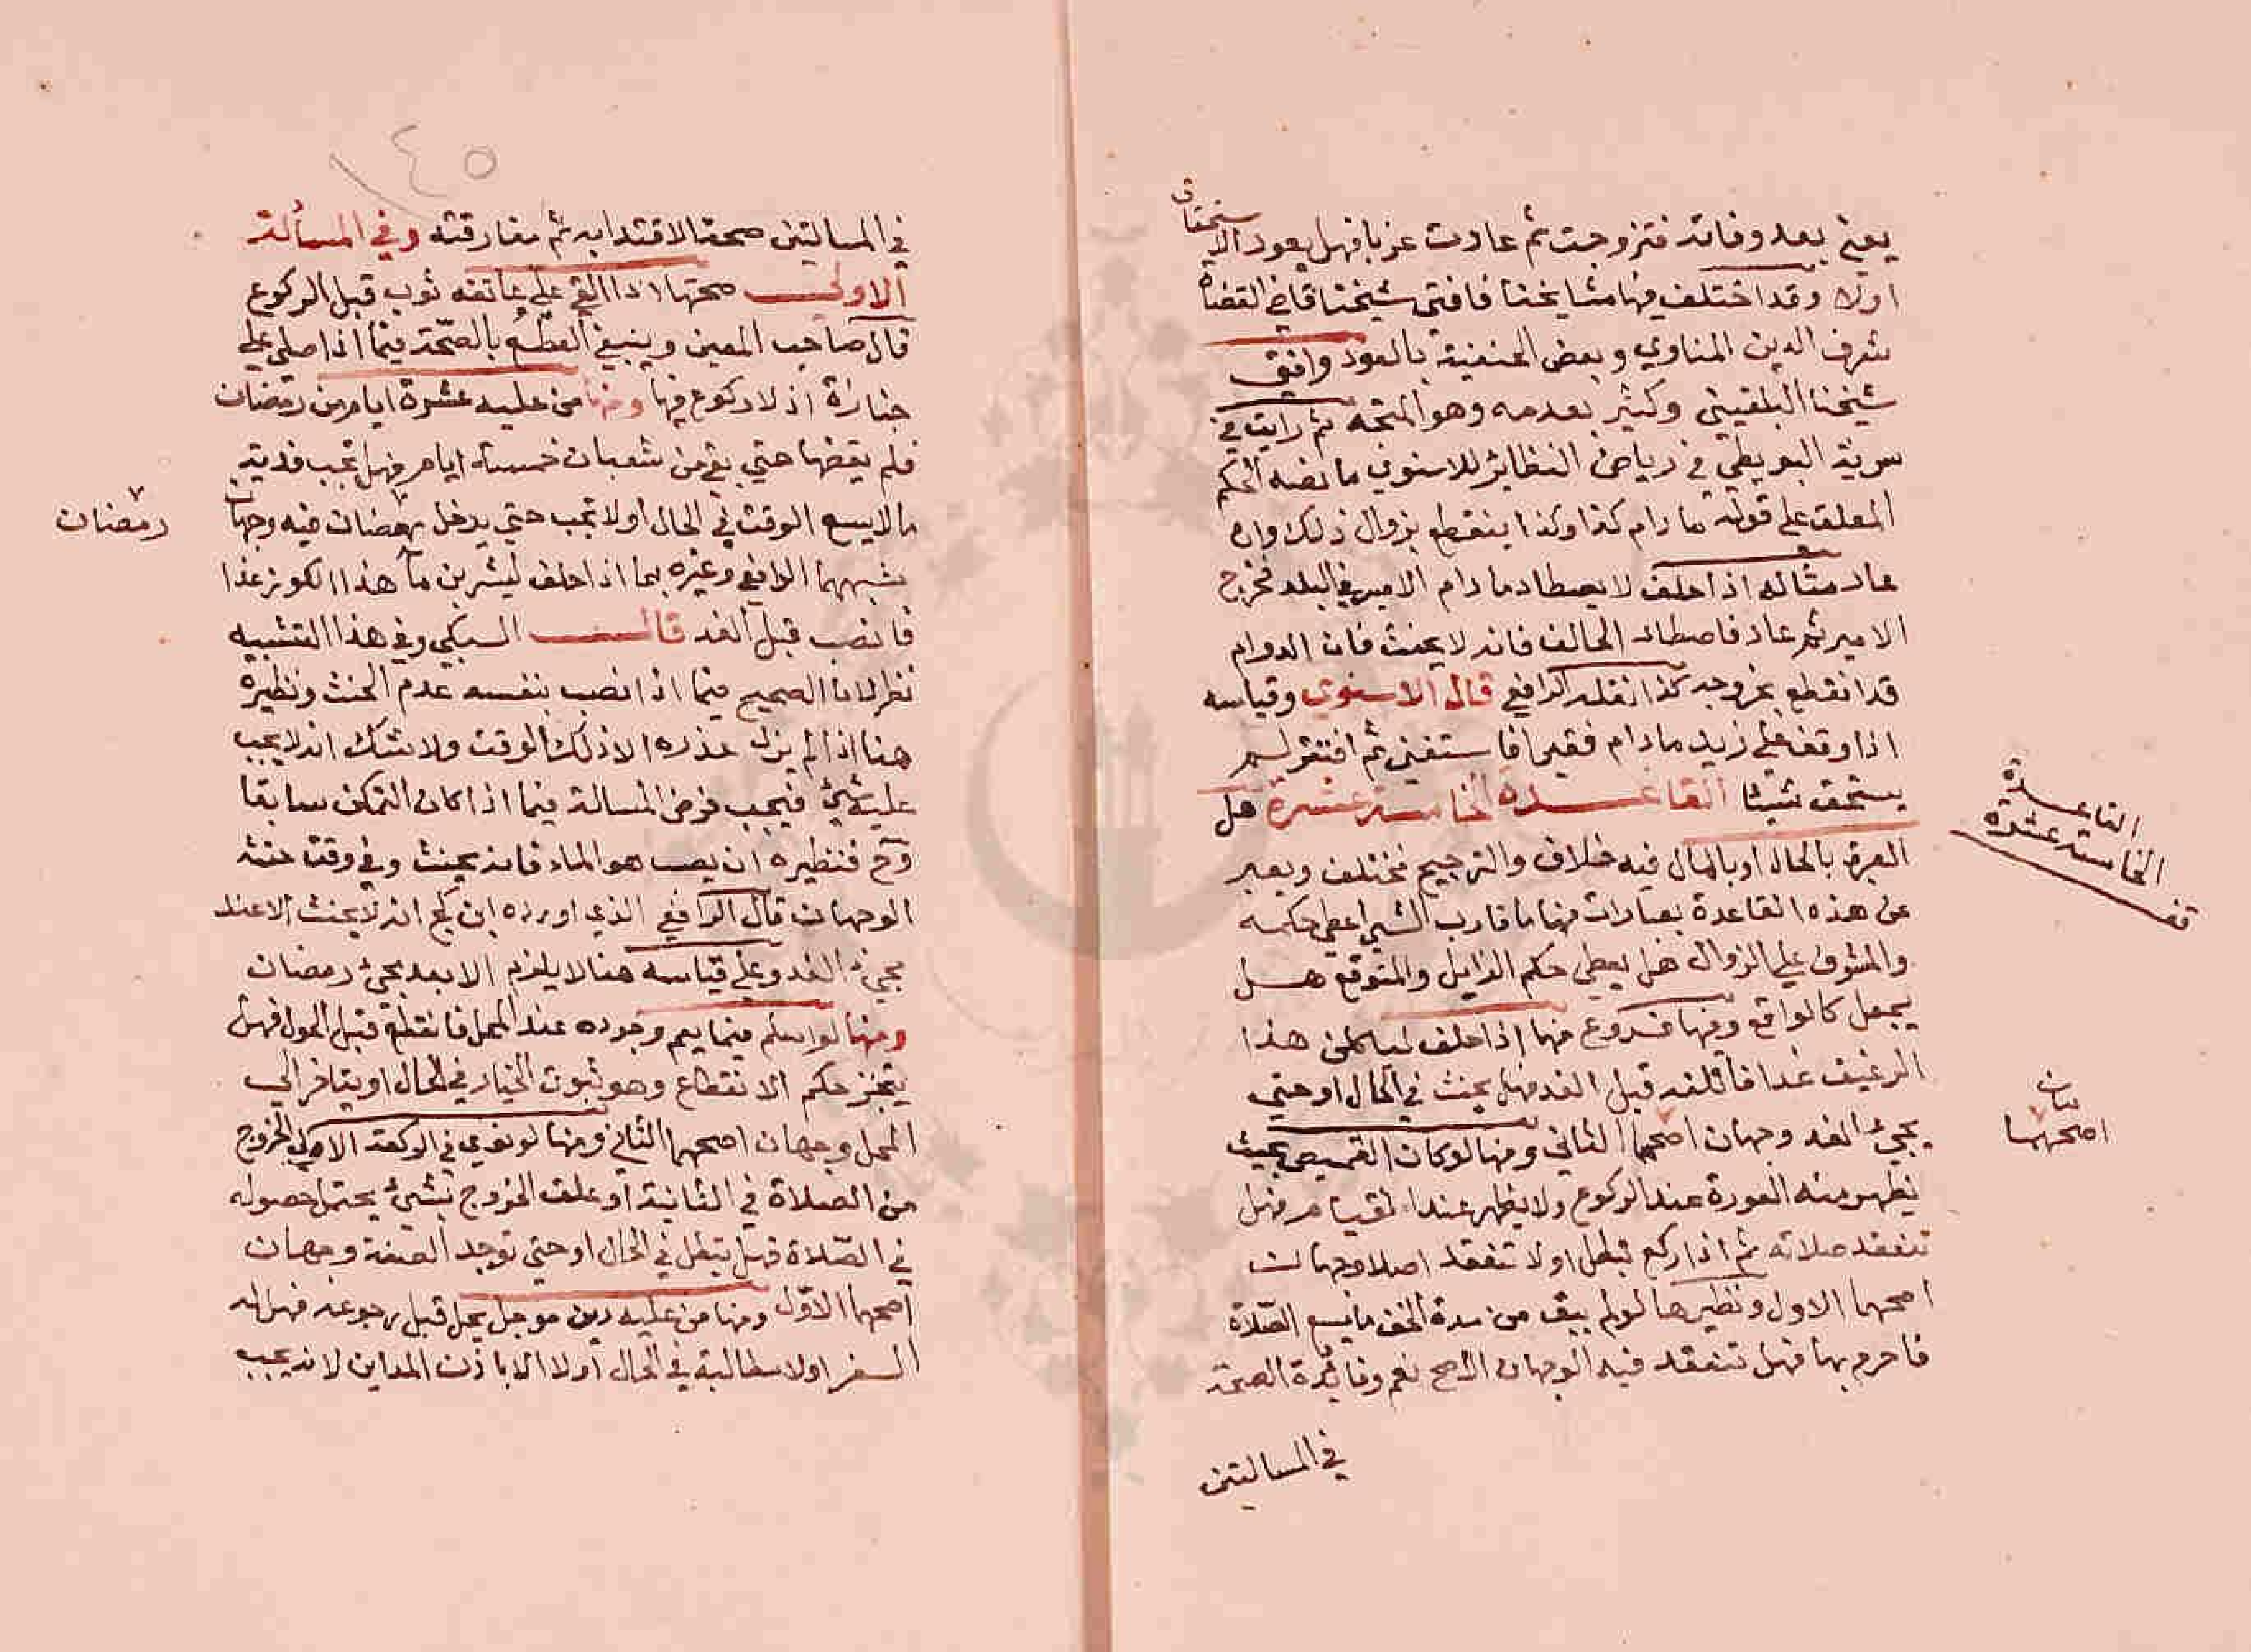 يعني بعد وفاته فتزوجت ثم عادت عزبا فهل يعود الاستحقاق
اولا وقد اختلف فيها مشايخنا فافتى شيخنا قاضي القضاة
شرف الدين المناوي وبعض الحنفية بالعود وافتى
شيخنا البلقيني وكثير بعدمه وهو المتجه ثم رايت في
في رياض النظاير للاسنوي ما نصه الحكم
المعلق على قولنه ما دام كذا وكذا ينقطع بزوال ذلك وان
عاد مثاله اذا حلف لا يصطاد ما دام الامير في البلد فخرج
الامير ثم عاد فاصطاد الحالف فانه لا يحنث فان الدوام
قد انقطع بخروجه كذا نقله الرافعي قال الاسنوي وقياسه
اذا وقف على زيد ما دام فقيرا فاستغنى ثم افتقر لم
يستحق شيئا القاعدة الخامسة عشرة هل
العبرة بالحال او بالمال فيه خلاف والترجيح مختلف ويعبر
عن هذه القاعدة بعبارات منها ما قارب الشي اعطي حكمه
والمشرف على الزوال هل يعطي حكم الزايل والمتوقع هل
يجعل كالواقع وفيها فروع منها اذا حلف لياكلن هذا
الرغيف غدا فاتلفه قبل الغد فهل يحنث في الحال او حتى
يجيء الغد وجهان اصحهما الثاني ومنها لو كان القميص بحيث
يظهر منه العورة عند الركوع ولا يظهر عند القيام فهل
تنعقد صلاته ثم اذا ركع تبطل اولا تنعقد اصلا وجهان
اصحهما الاول ونظيرها لو لم يبق من مدة الخف ما يسع الصلاة
فاحرم بها فهل تنعقد فيه الوجهان الاصح نعم وفايدة الصحة
في المسالتين
القاعدة
الخامسة عشرة
قف
بيان
اصحهما
١٤٥
في المسالتين صحة الاقتدا به ثم مفارقته وفي المسألة
الاولى صحتها اذا القي على عاتقه ثوب قبل الركوع
قال صاحب المعين وينبغي القطع بالصحة فيما اذا صلى على
جنازة اذ لا ركوع فيها ومنها من عليه عشرة ايام من رمضان
فلم يقضها حتي بقي من شعبان خمسة ايام فهل تجب فدية
ما لا يسع الوقت في الحال او لا تجب حتي يدخل رمضان فيه وجهان
شبههما الرافعي وغيره بما اذا حلف ليشربن ما هذا الكوز غدا
فانصب قبل الغد قال السبكي وفي هذا التشبيه
نظر لانا الصحيح فيما اذا انصب بنفسه عدم الحنث ونظيره
هنا اذا لم يزل عذره الا ذلك الوقت ولا شك انه لا يجب
عليه شيء فيجب فرض المسالة فيما اذا كان التمكن سابقا
وح فنظيره ان يصب هو الماء فانه يحنث وفي وقت حنثه
الوجهان قال الرافعي الذي اورده ابن كج انه لا يحنث الا عند
مجيء الغد وعلى قياسه هنا لا يلزم الا بعد مجيء رمضان
ومنها لو اسلم فيما يعم وجوده عند المحل فانقطع قبل الحول فهل
يتنجز حكم الانقطاع وهو ثبوت الخيار في الحال او يتاخر الى
المحل وجهان اصحهما الثاني ومنها لو نوى في الركعة الاولى الخروج
من الصلاة في الثانية او علق الخروج بشيء يحتمل حصوله
في الصلاة فهل تبطل في الحال او حتى توجد الصفة وجهان
اصحهما الاول ومنها من عليه دين موجل يحل قبل رجوعه فهل له
السفر اولا مطالبة في الحال اولا الا باذن المداين لانه يجب
رمضان